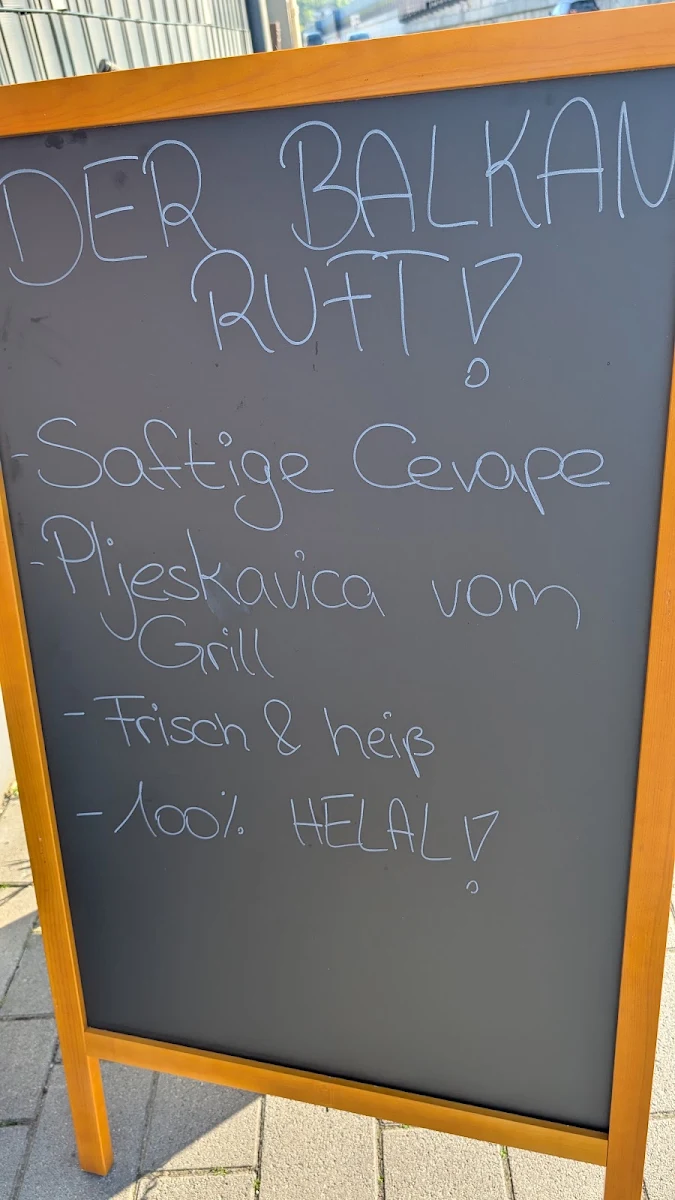 DER BALKAN
RUFT!
- Saftige Cevape
- Pljeskavica vom
Grill
- Frisch & heiß
- 100% HELAL!